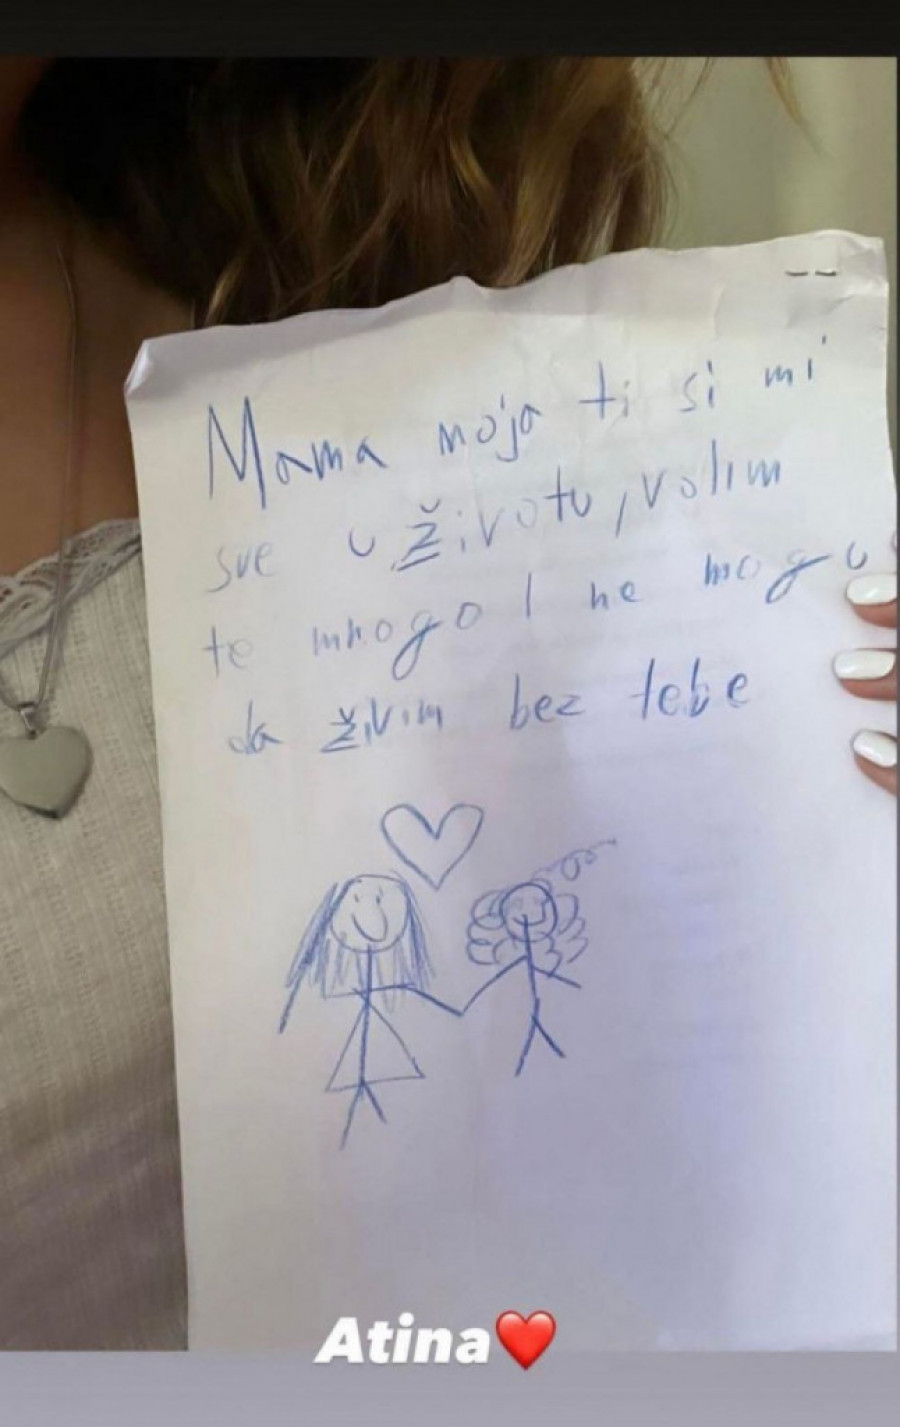 Mama moja ti si mi
sve u životu, volim
te mnogo I ne mogu
da živim bez tebe
Atina❤️